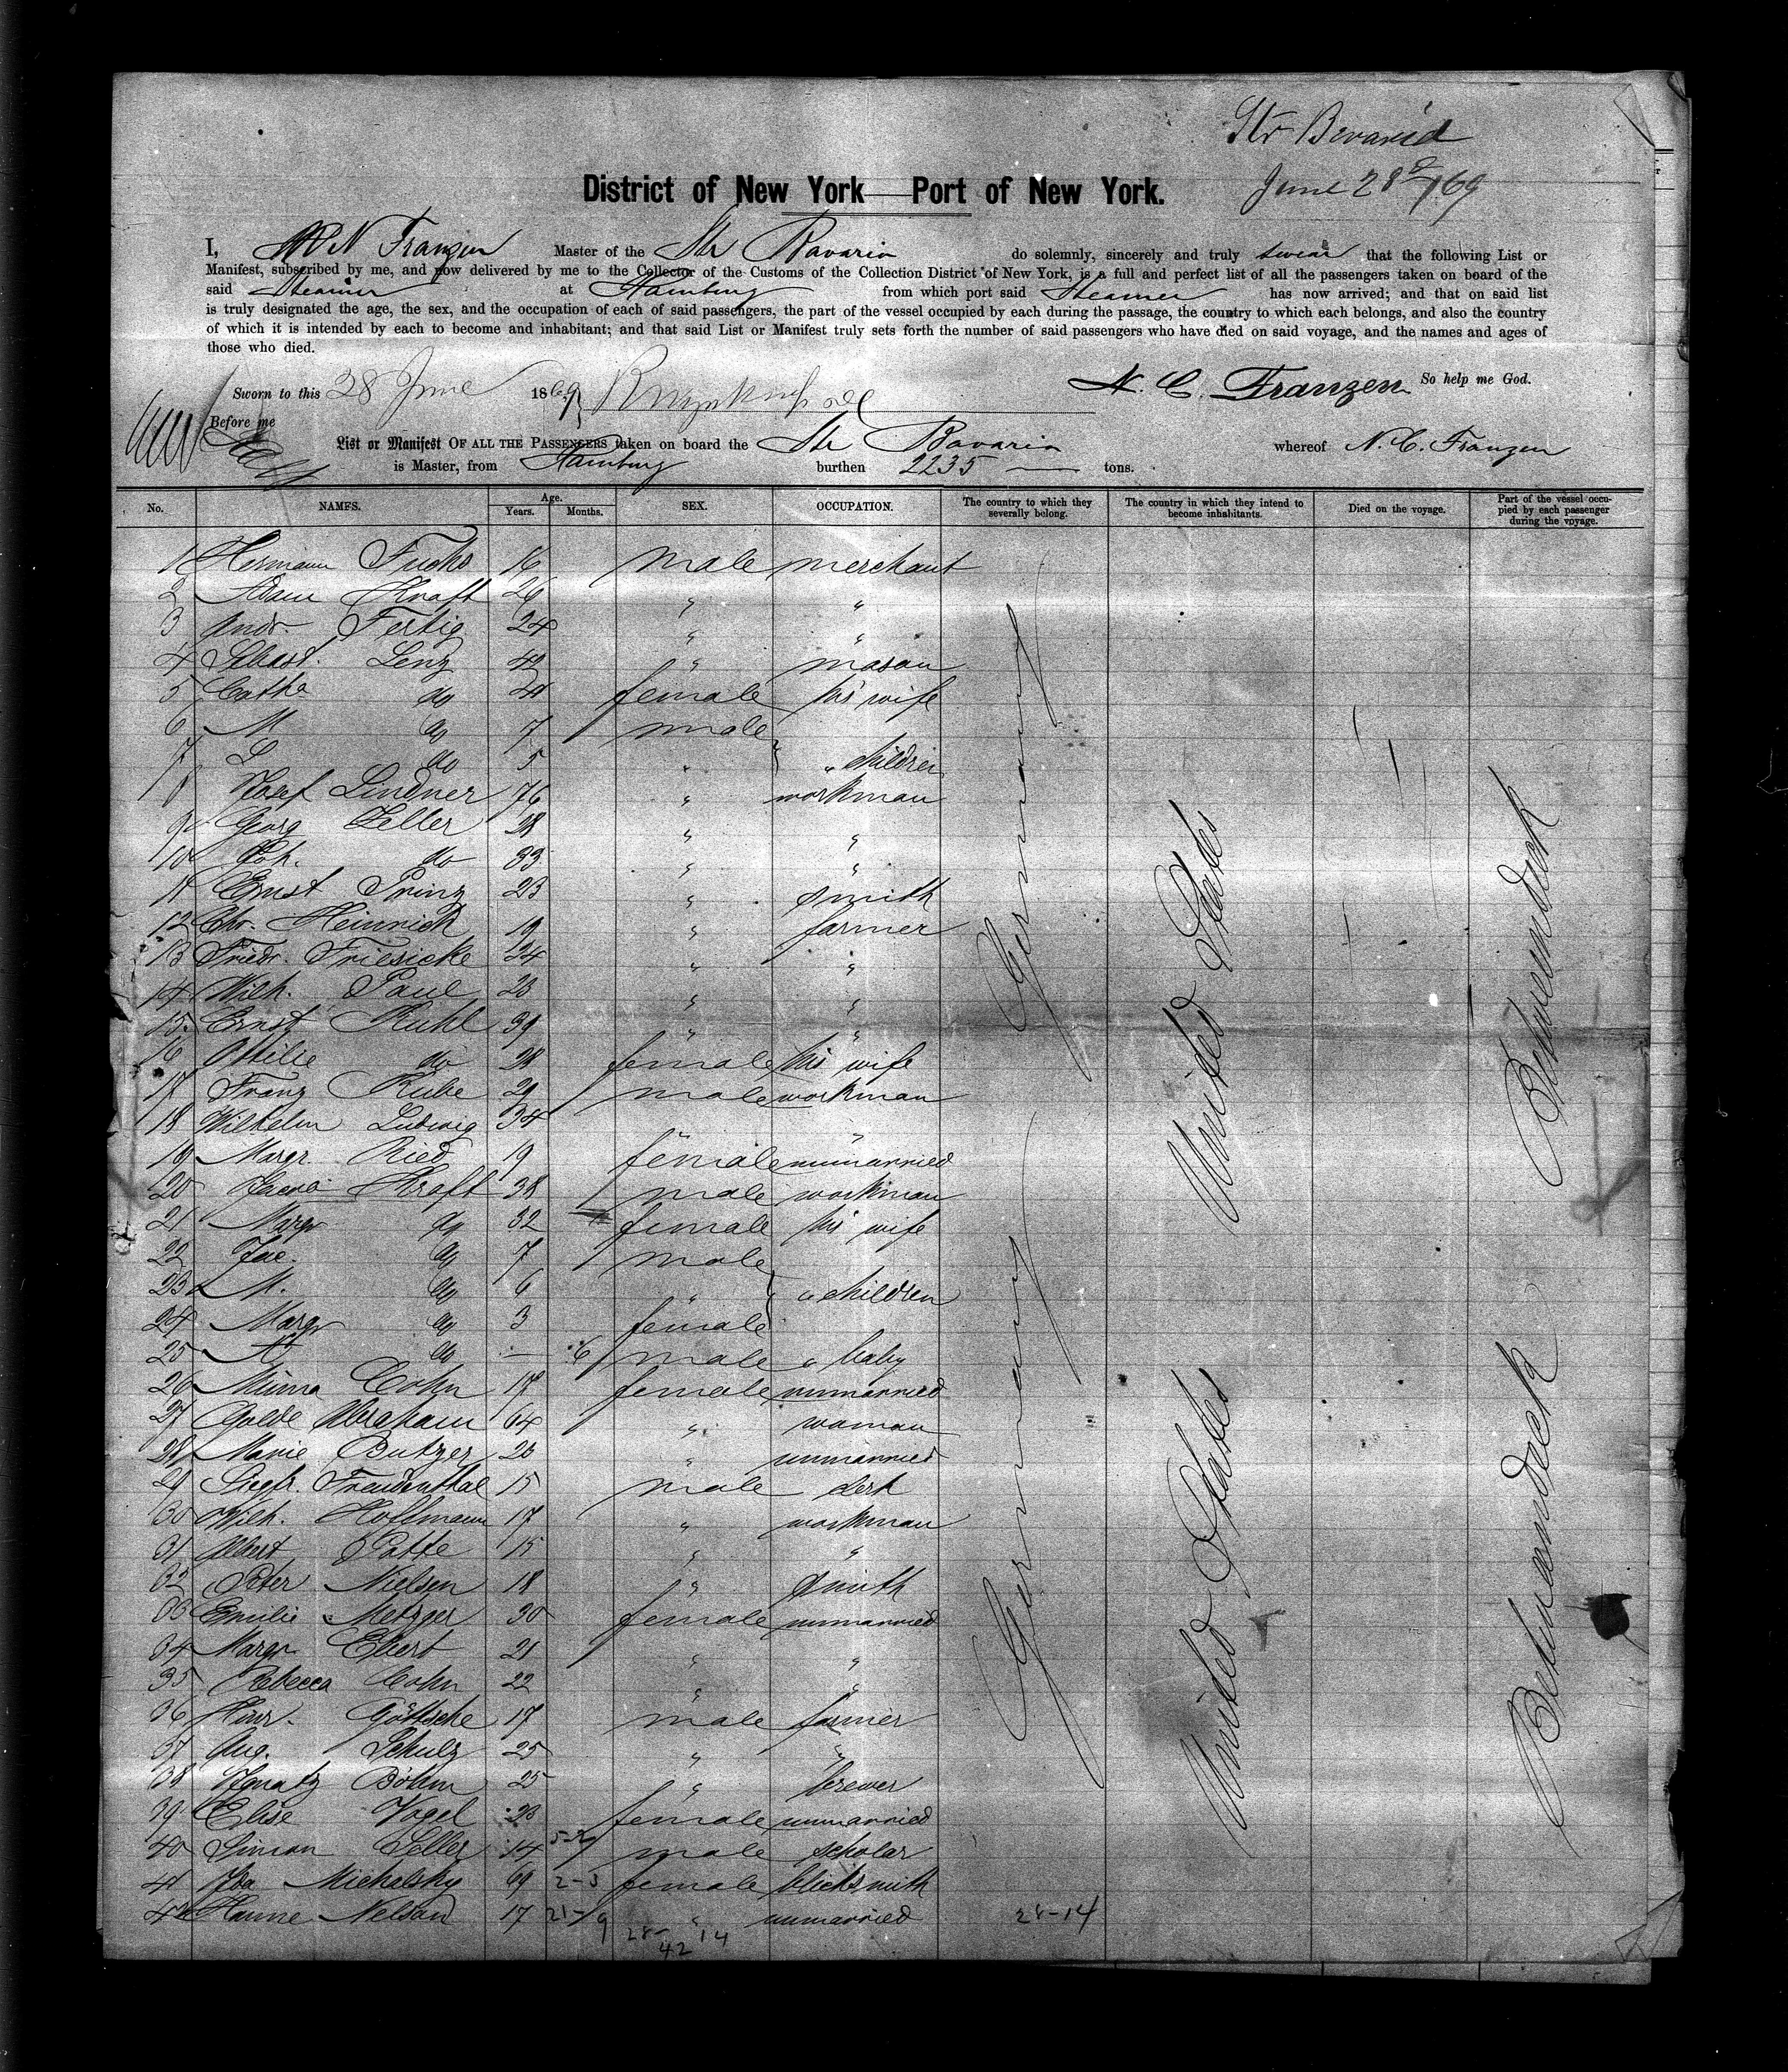 Str Bavaria
June 28th/69
District of New York — Port of New York.
I, N Franzen Master of the Str Bavaria do solemnly, sincerely and truly swear that the following List or
Manifest, subscribed by me, and now delivered by me to the Collector of the Customs of the Collection District of New York, is a full and perfect list of all the passengers taken on board of the
said Steamer at Hamburg from which port said Steamer has now arrived; and that on said list
is truly designated the age, the sex, and the occupation of each of said passengers, the part of the vessel occupied by each during the passage, the country to which each belongs, and also the country
of which it is intended by each to become and inhabitant; and that said List or Manifest truly sets forth the number of said passengers who have died on said voyage, and the names and ages of
those who died.
Sworn to this 28 June 1869 N. C. Franzen So help me God.
Before me
List or Manifest OF ALL THE PASSENGERS taken on board the Str Bavaria whereof N. C. Franzen
is Master, from Hamburg burthen 2235 tons.
No. NAMES. Age. Years. Months. SEX. OCCUPATION. The country to which they severally belong. The country in which they intend to become inhabitants. Died on the voyage. Part of the vessel occupied by each passenger during the voyage.
1 Hermann Fuchs 16 male merchant
2 Adam Kraft 26 " "
3 Andr. Fertig 24 " "
4 Sebast. Lenz 42 " mason
5 Catha do 21 female his wife
6 M do 7 male
7 L do 5 " " children
8 Josef Lindner 76 " workman
9 Georg Zeller 28 " "
10 Joh. do 33 " "
11 Ernst Prinz 23 " smith
12 Chr. Heinrich 19 " farmer
13 Friedr. Friesicke 24 " "
14 Wilh. Paul 28 " "
15 Ernst Kuhl 39 " "
16 Ottilie do 28 female his wife
17 Franz Kube 29 male workman
18 Wilhelm Ludwig 34 " "
19 Margr. Ried 19 female unmarried
20 Jacob Kraft 38 male workman
21 Margr do 32 female his wife
22 Jac. do 7 male
23 M. do 6 " " children
24 Margr do 3 female
25 do — 6 male " baby
26 Minna Cohn 17 female unmarried
27 Golde Abraham 64 " woman
28 Marie Butzer 26 " unmarried
29 Siegfr. Freudenthal 15 male clerk
30 Wilh. Hoffmann 17 " workman
31 Albert Patte 15 " "
32 Peter Nielsen 18 " smith
33 Emilie Metzger 30 female unmarried
34 Margr Ebert 21 " "
35 Rebecca Cohn 22 " "
36 Hinr. Göttsche 17 male farmer
37 Aug. Schulz 25 " "
38 Ignatz Böhm 25 " brewer
39 Elise Vogel 23 female unmarried
40 Simon Zeller 14 male scholar
41 Ida Michalsky 69 2-3 female blicksmith
42 Hanne Nelson 17 21-9 " unmarried 28-14
28-14
42
Germany
United States
Betweendeck
Germany
United States
Betweendeck